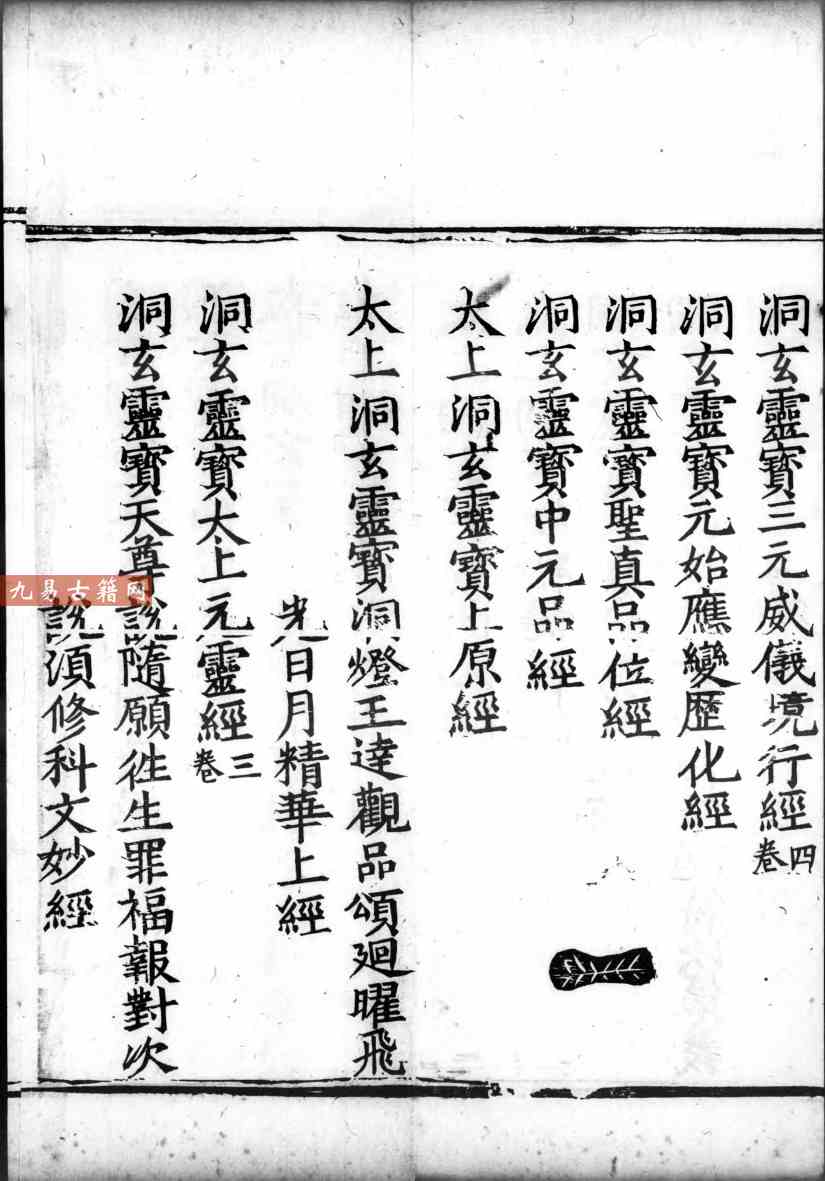 洞玄靈寶三元威儀境行經四卷
洞玄靈寶元始應變歷化經
洞玄靈寶聖真品位經
洞玄靈寶中元品經
太上洞玄靈寶上原經
太上洞玄靈寶洞燈王達觀品頌廻曜飛
光日月精華上經
洞玄靈寶太上元靈經三卷
洞玄靈寶天尊說隨願徃生罪福報對次
說湏修科文妙經
九易古籍网